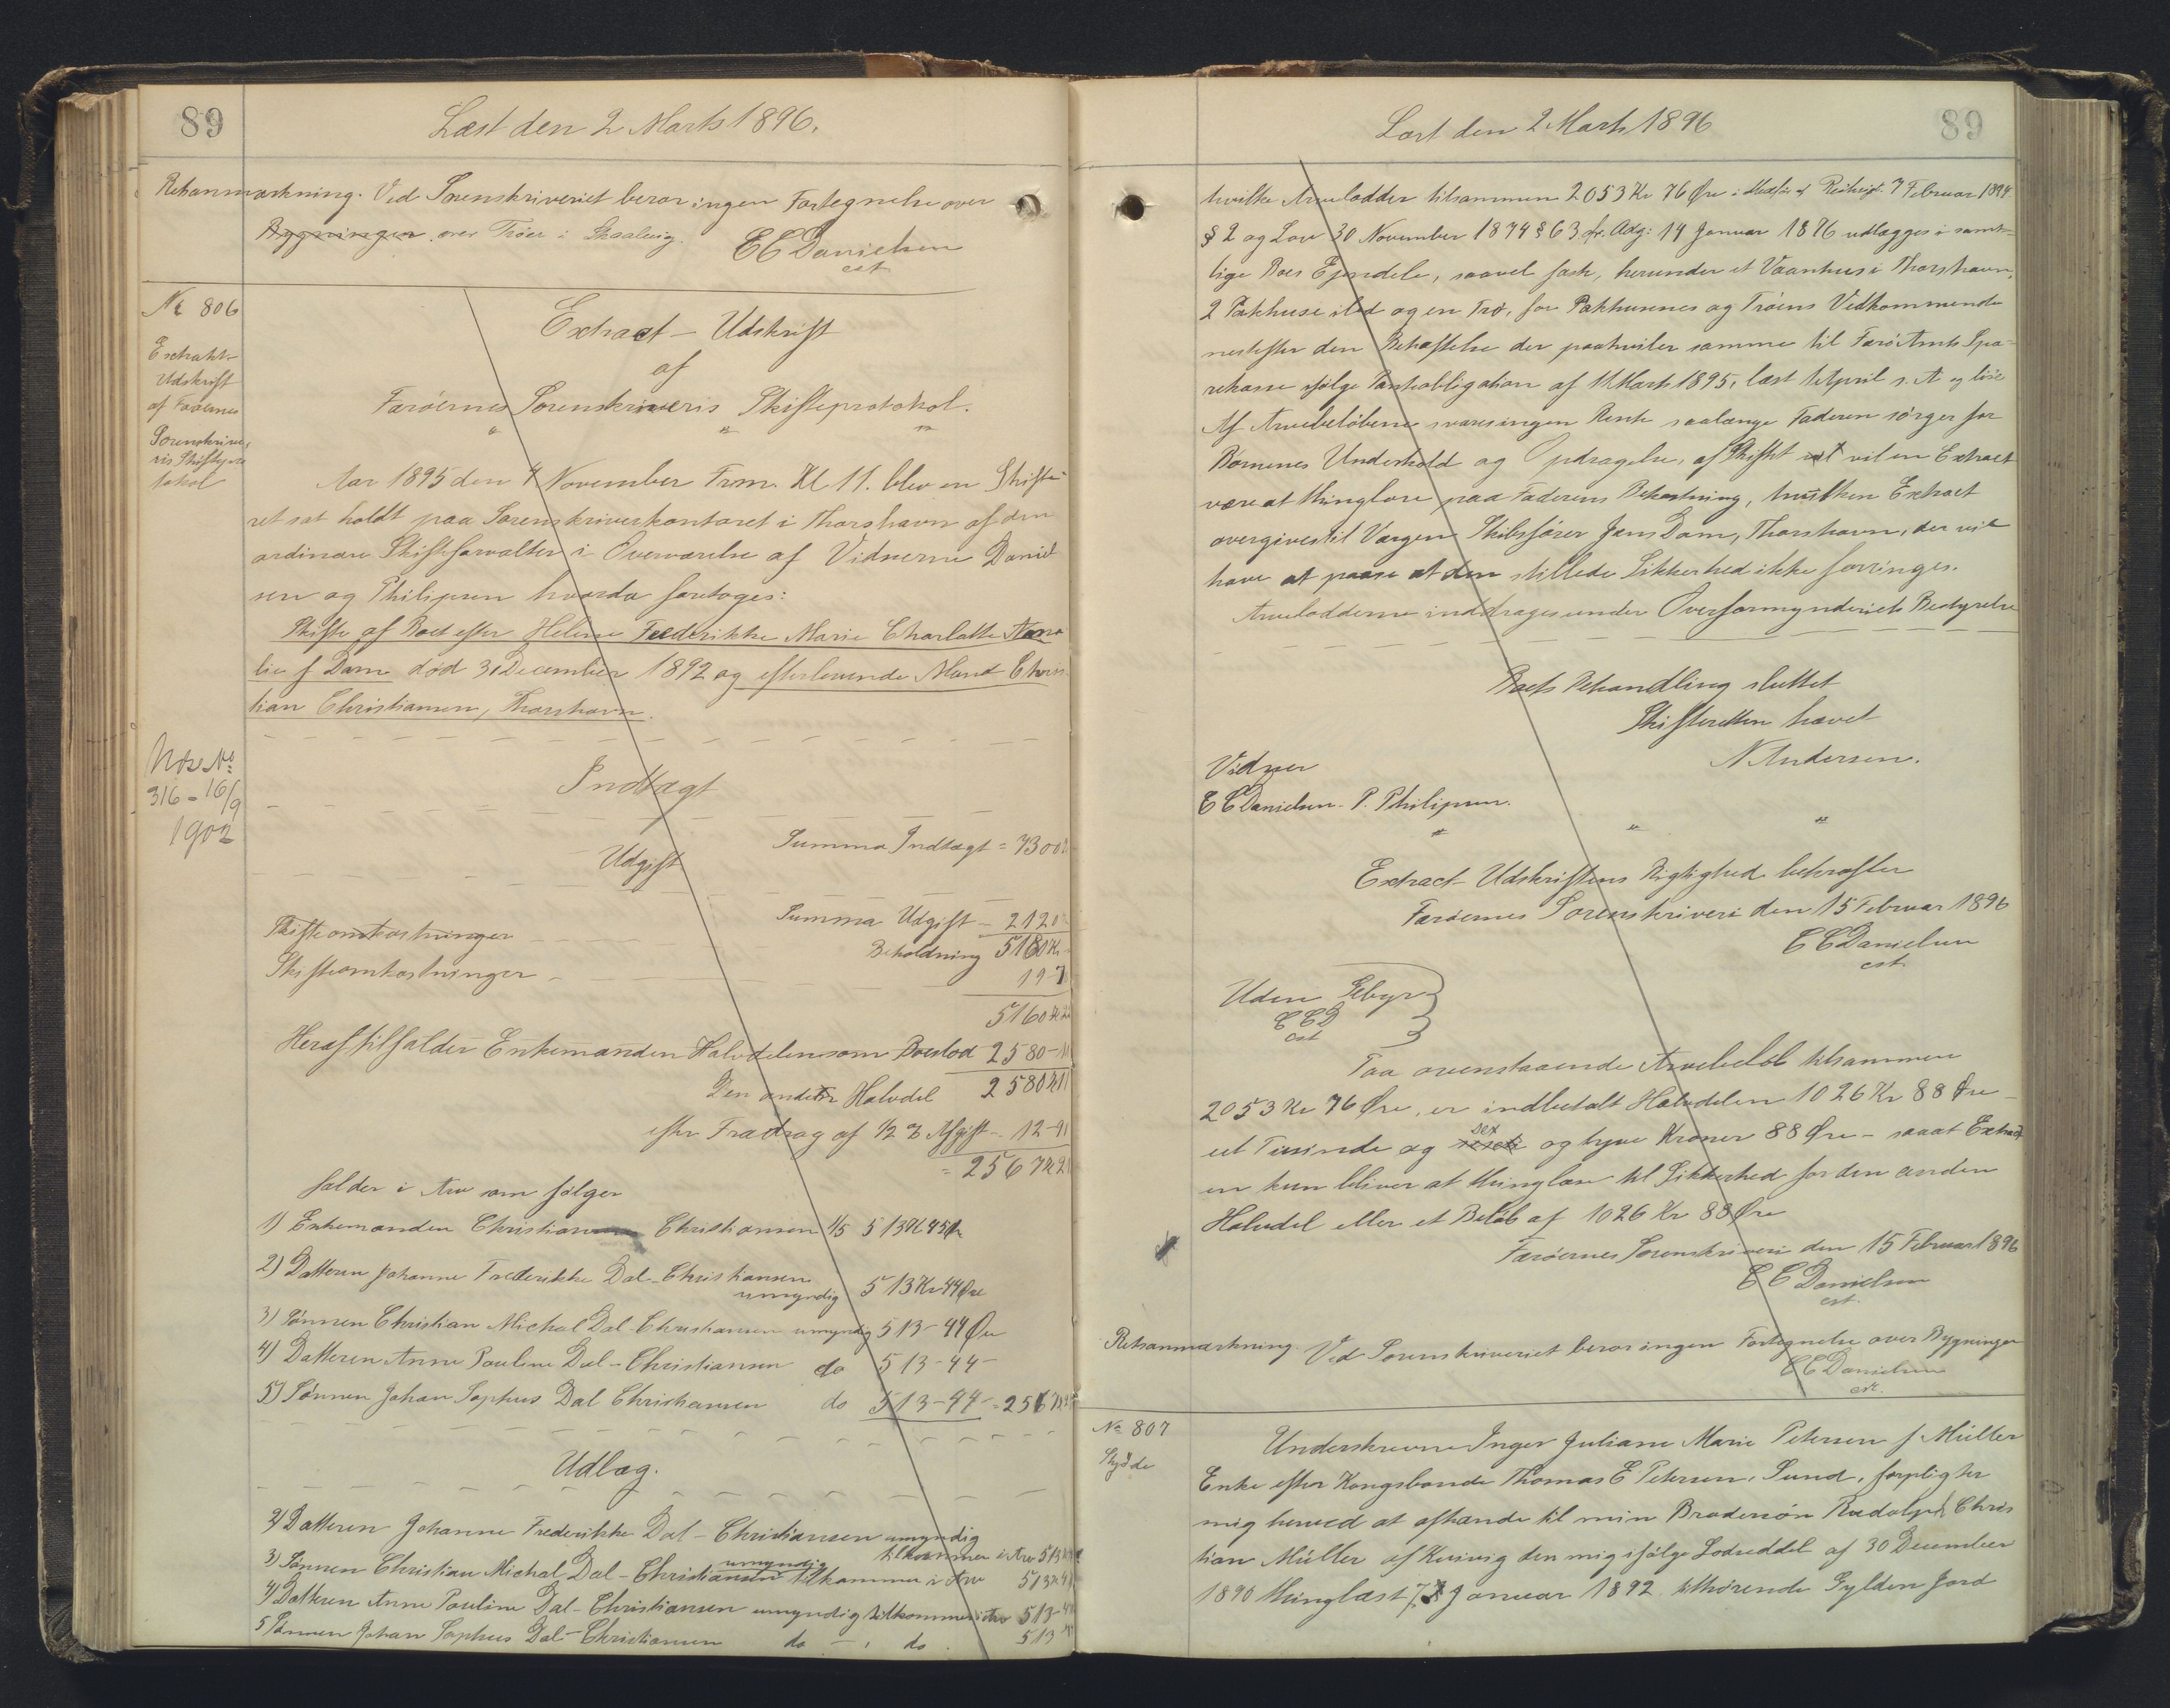 89
Læst den 2 Marts 1896.
Retsanmærkning. Ved Sorenskriveriet beror ingen Fortegnelse over
Bygninger over Tróer i Skaalevig.
E C Danielsen
cst
No 806
Extrakt-
Udskrift
af Færøernes
Sorenskrive-
ris Skiftepro
tokol
Extract - Udskrift
af
Færóernes Sorenskriveris Skifteprotokol.
Aar 1895 den 4 November Frm. Kl 11. blev en Skifte-
ret sat holdt paa Sorenskriverkontoret i Thorshavn af den
ordinære Skifteforvalter i Overværelse af Vidnerne Daniel
sen og Philipsen hvorda foretoges:
Skifte af Boet efter Helene Frederikke Marie Charlotte Ama
lie f Dam død 31 December 1892 og efterlevende Mand Chris
tian Christiansen, Thorshavn.
316 - 16/9
1902
Indtægt
Summa Indtægt = 7300
Udgift
Summa Udgift - 2120
Skifteomkostninger
Beholdning 5180 Kr
Skifteomkostninger
19-7
5160
Heraf tilfalder Enkemanden Halvdelen som Boeslod 2580-11
Den anden Halvdel 2580 11
efter Fradrag af 1/2 % Afgift - 12-91
= 2567
falder i Arv som følger
1) Enkemanden Christian Christiansen 1/5 513 Kr 45 Øre
2) Datteren Johanne Frederikke Dal-Christiansen
umyndig 513 Kr 44 Øre
3) Sønnen Christian Michal Dal-Christiansen umyndig 513-44 Øre
4) Datteren Anne Pouline Dal-Christiansen do 513-44-
5) Sónnen Johan Sophus Dal Christiansen do 513-44- = 2567
Udlæg.
2) Datteren Johanne Frederikke Dal-Christiansen umyndig
tilkommer i Arv 513
3) Sønnen Christian Michal Dal-Christiansen umyndig tilkommer i Arv 513
4) Datteren Anne Pouline Dal-Christiansen umyndig tilkommer i Arv 513
5 Sønnen Johan Sophus Dal-Christiansen do - do 513
Læst den 2 Marts 1896
89
hvilke Arvelodder tilsammen 2053 Kr 76 Øre i Medfór af 7 Februar 1894
§ 2 og Lov 30 November 1874 § 63 jfr. Adg: 14 Januar 1876 udlægges i samt-
lige Boes Ejendele, saavel fast, herunder et Vaanhus i Thorshavn,
2 Pakhuse ibd og en Tró, for Pakhusenes og Tróens Vedkommende
nestefter den Behæftelse der paahviler samme til Færó Amts Spa-
rekasse ifølge Pantobligation af 11 Marts 1895, læst 1 April s. A og løse
Af Arvebelöbene svares ingen Rente saalænge Faderen sörger for
Børnenes Underhold og Opdragelse, af Skiftet vil en Extract
være at thinglæse paa Faderens Bekostning, hvilken Extract
overgives til Værgen Skibsfører Jens Dam, Thorshavn, der vil
have at paase at den stillede Sikkerhed ikke forringes.
Arvelodderne inddrages under Overformynderiets Bestyrelse
Boets Behandling sluttet
Skifteretten hævet
N Andersen.
Vidner
E C Danielsen - P. Philipsen.
Extract - Udskriftens Rigtighed bekræfter
Færóernes Sorenskriveri den 15 Februar 1896
E C Danielsen
cst.
Uden Gebyr
E C D
cst
Paa ovenstaaende Arvebeløb tilsammen
2053 Kr 76 Øre, er indbetalt Halvdelen 1026 Kr 88 Øre -
eet Tusinde og sex og tyve Kroner 88 Øre - saaat Extract
en kun bliver at thinglæse til Sikkerhed for den anden
Halvdel eller et Belöb af 1026 Kr 88 Øre
Færóernes Sorenskriveri den 15 Februar 1896
E C Danielsen
cst.
Retsanmærkning. Ved Sorenskriveriet beror ingen Fortegnelse over Bygninger
E C Danielsen
cst.
No 807
Skjøde
Underskrevne Inger Juliane Marie Petersen f Müller
Enke efter Kongsbonde Thomas E Petersen, Sund, forpligter
mig herved at afhænde til min Brodersón Rudolph Chris
tian Müller af Kvivig den mig ifólge Lodseddel af 30 December
1890 thinglæst 7 Januar 1892 tilhørende Gylden Jord